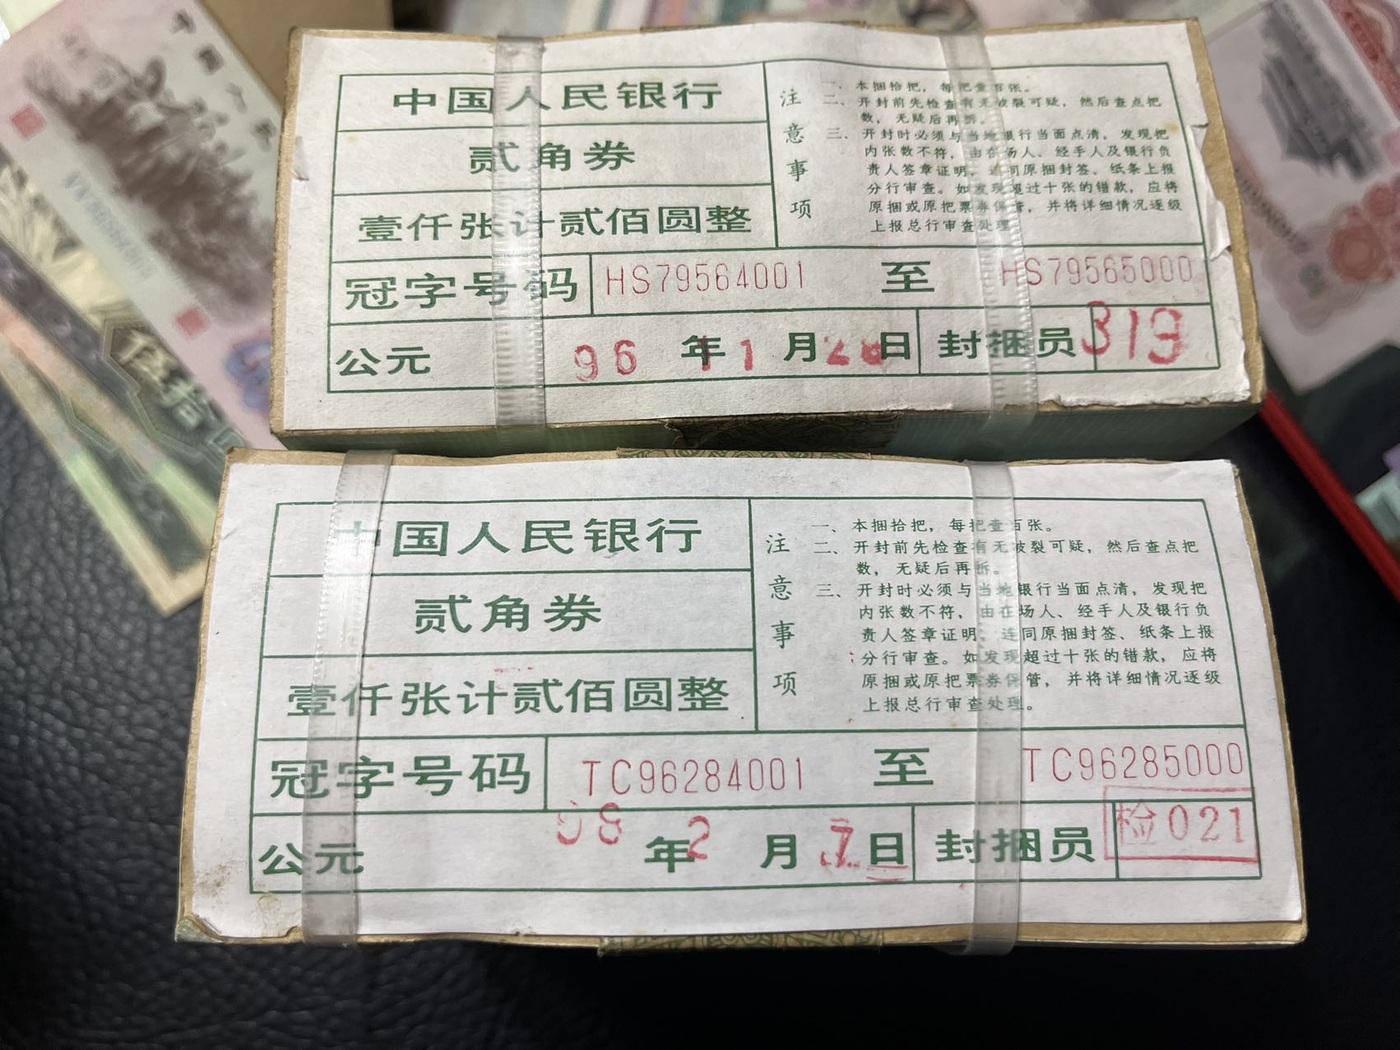 中国人民银行
贰角券
壹仟张计贰佰圆整
注意事项
一、本捆拾把，每把壹百张。
二、开封前先检查有无破裂可疑，然后查点把
数，无疑后再拆。
三、开封时必须与当地银行当面点清，发现把
内张数不符，由在场人、经手人及银行负
责人签章证明，连同原捆封签、纸条上报
分行审查。如发现超过十张的错款，应将
原捆或原把票券保管，并将详细情况逐级
上报总行审查处理。
冠字号码 HS79564001 至 HS79565000
公元 96 年 11 月 日 封捆员 319
中国人民银行
贰角券
壹仟张计贰佰圆整
注意事项
一、本捆拾把，每把壹百张。
二、开封前先检查有无破裂可疑，然后查点把
数，无疑后再拆。
三、开封时必须与当地银行当面点清，发现把
内张数不符，由在场人、经手人及银行负
责人签章证明，连同原捆封签、纸条上报
分行审查。如发现超过十张的错款，应将
原捆或原把票券保管，并将详细情况逐级
上报总行审查处理。
冠字号码 TC96284001 至 TC96285000
公元 98 年 2 月 7 日 封捆员 检021
伍拾